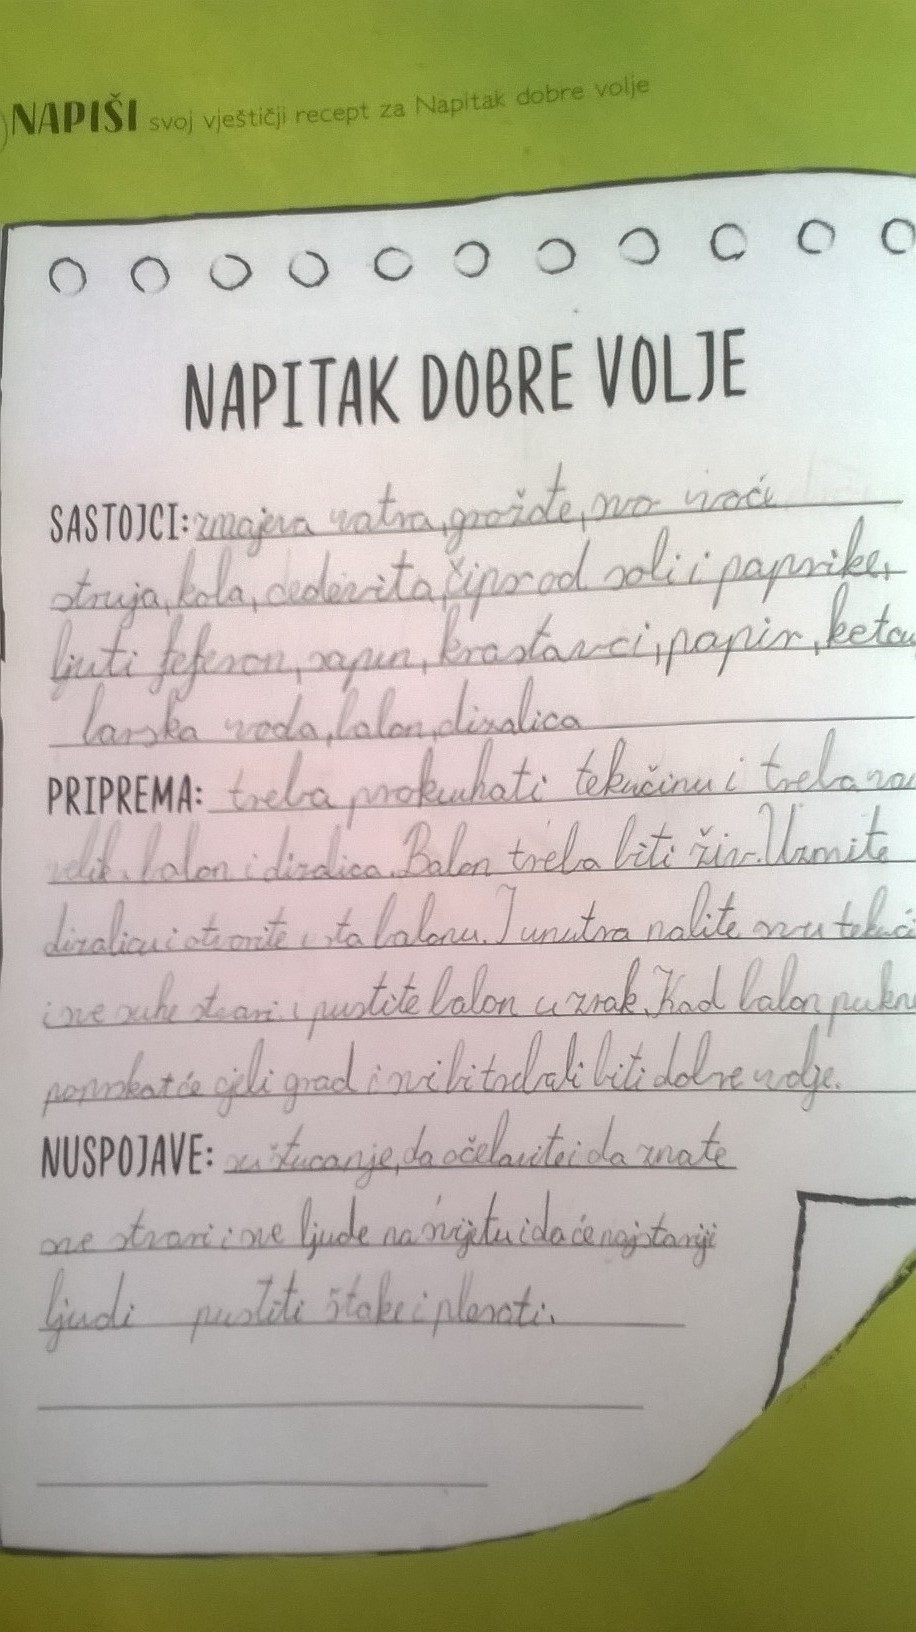 NAPIŠI svoj vještičji recept za Napitak dobre volje
NAPITAK DOBRE VOLJE
SASTOJCI: zmajeva vatra, grožđe, svo voće
struja, kola, cedevita, čips od soli i paprike,
ljuti feferon, sapun, krastavci, papir,
larska voda, balon, dizalica
PRIPREMA: treba prokuhati tekučinu i treba
velik balon i dizalica. Balon treba biti živ. Uzmite
dizalicu i otvorite usta balonu. I unutra nalite svu
i sve suhe stvari i pustite balon u zrak. Kad balon
poprskat će cjeli grad i svi bi trebali biti dobre volje.
NUSPOJAVE: su štucanje, da oćelavite i da znate
sve stvari i sve ljude na svijetu i da će najstariji
ljudi pustiti štake i plesati.